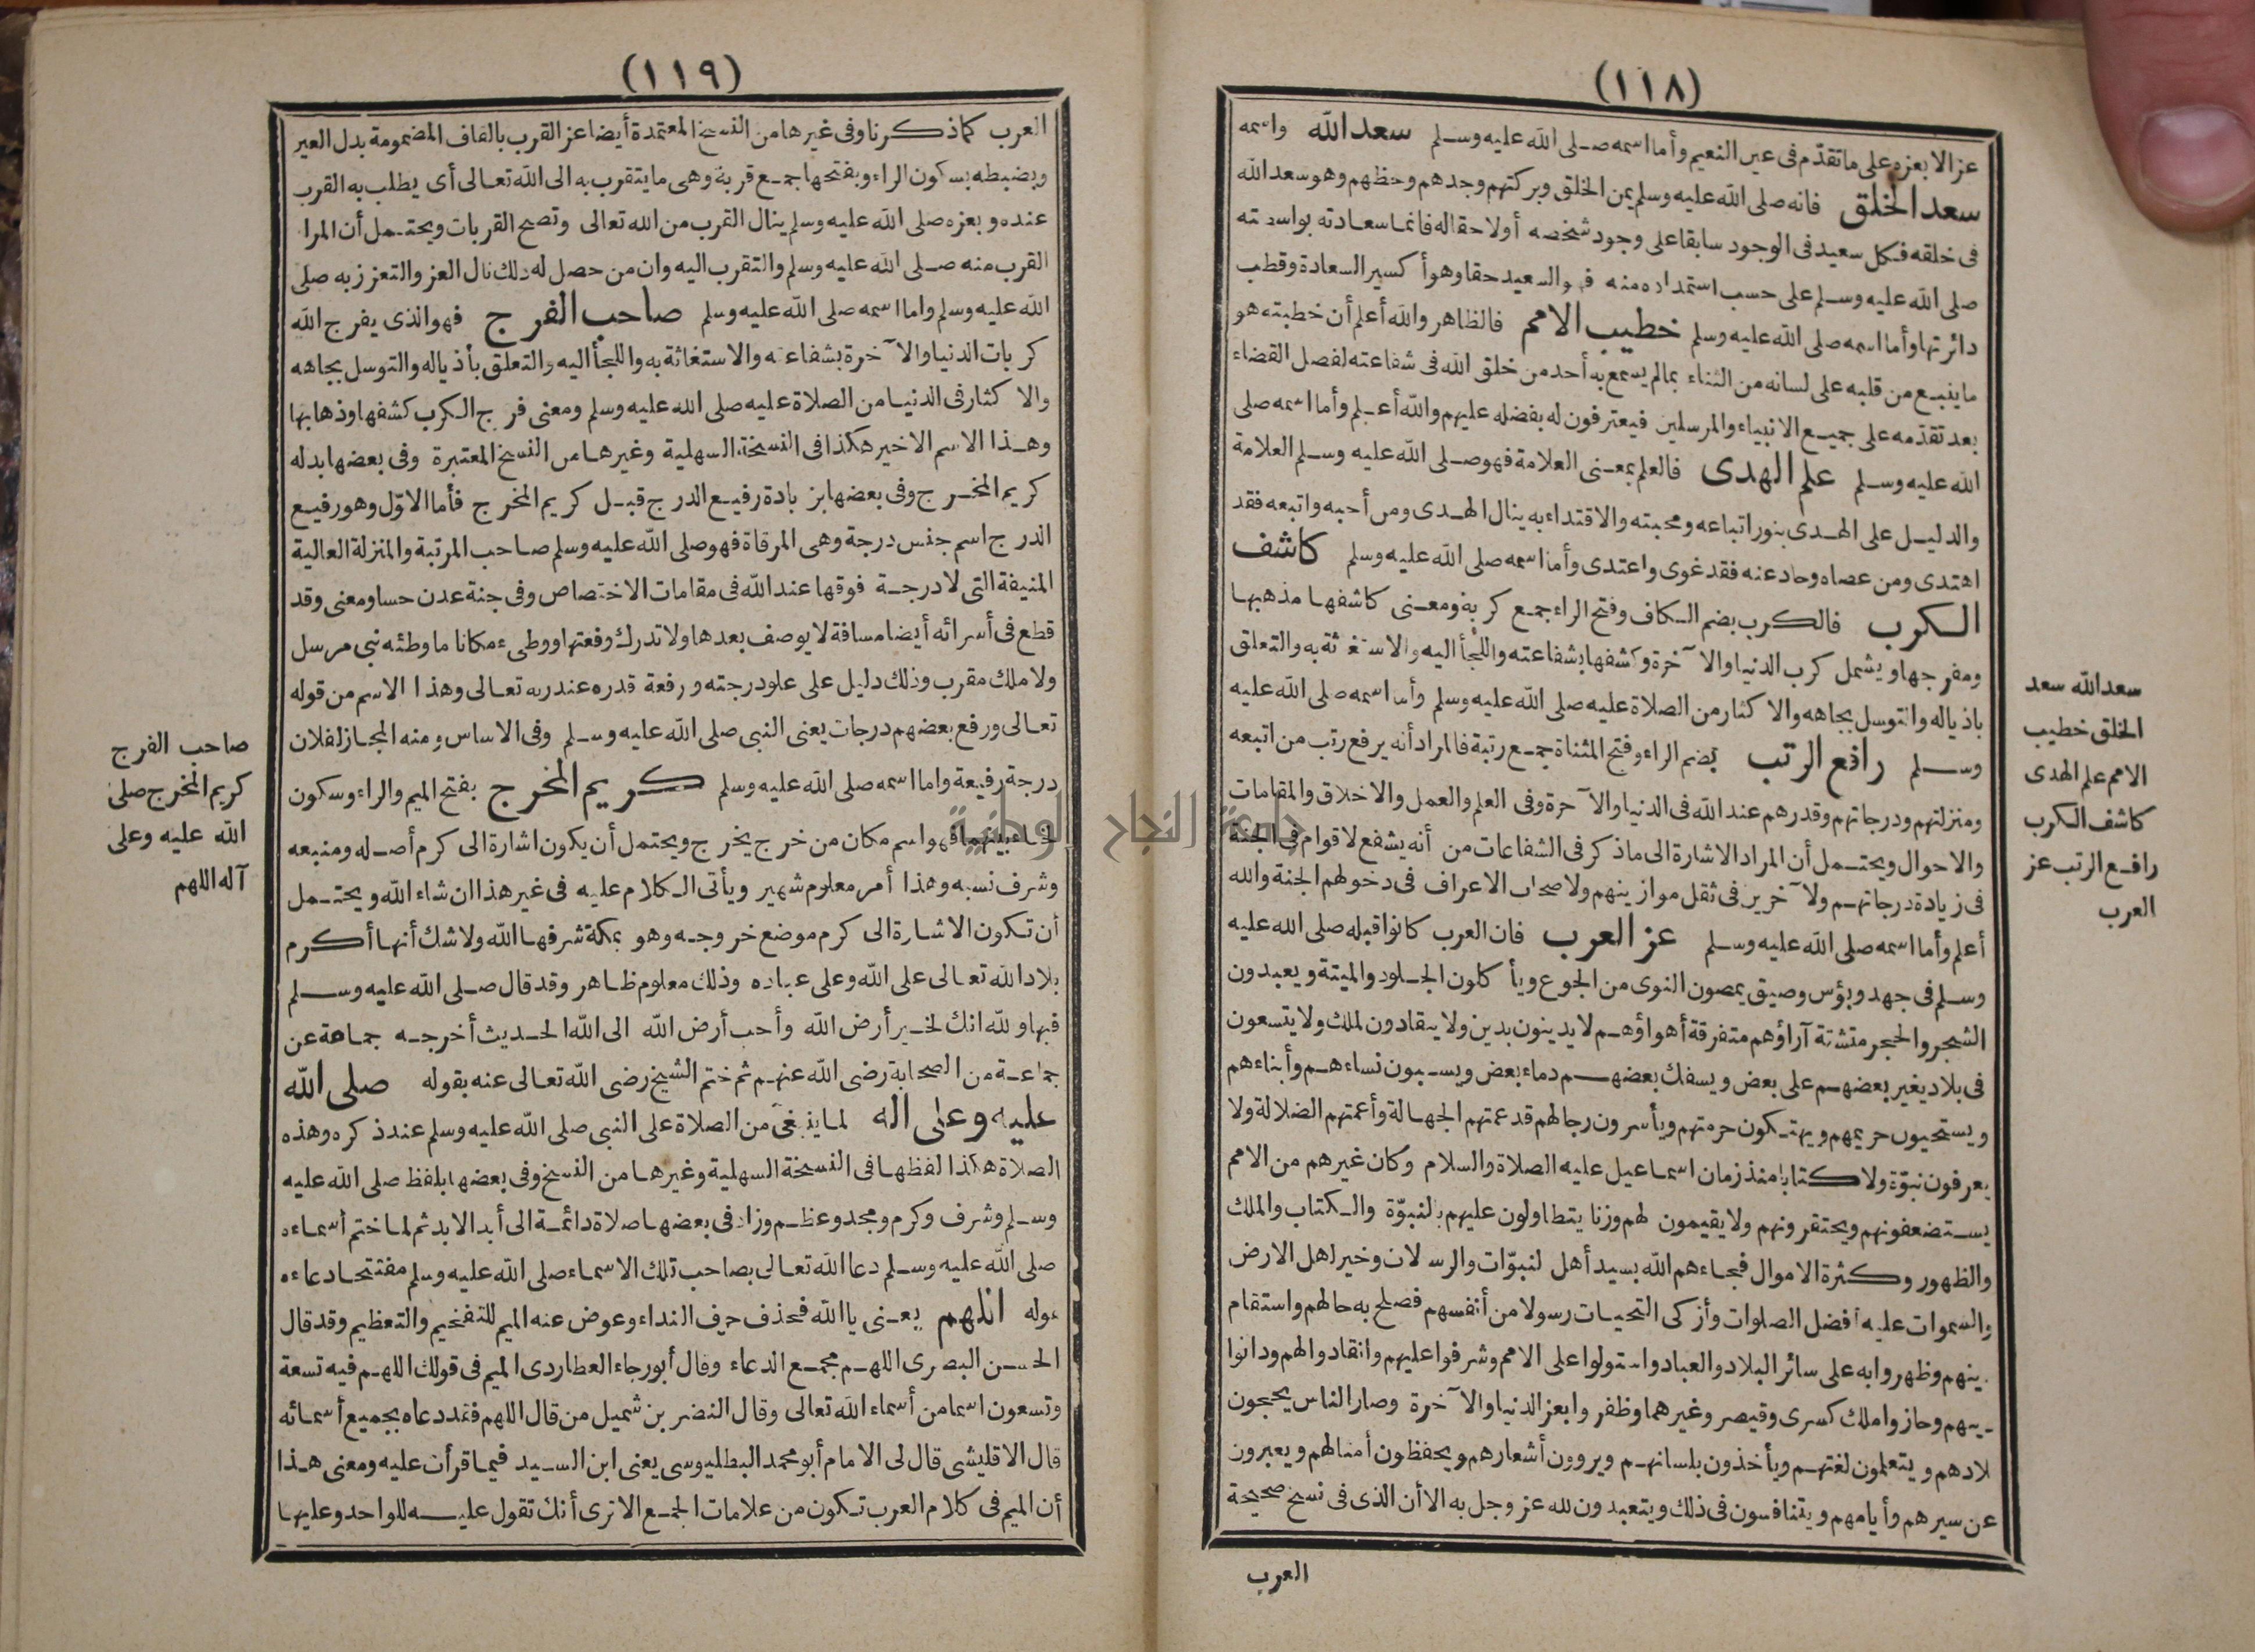 (١١٨)
عز الا بعزه على ما تقدّم فى عين النعيم وأما اسمه صلى الله عليه وسلم سعد الله واسمه
سعد الخلق فانه صلى الله عليه وسلم يمن الخلق وبركتهم وجدهم وحظهم وهو سعد الله
فى خلقه فكل سعيد فى الوجود سابقا على وجود شخصه أولاحقاله فانما سعادته بواسطته
صلى الله عليه وسلم على حسب استمداده منه فهو السعيد حقا وهو أكسير السعادة وقطب
دائرتها وأما اسمه صلى الله عليه وسلم خطيب الامم فالظاهر والله أعلم أن خطبته هو
ما ينبع من قلبه على لسانه من الثناء بما لم يسمع به أحد من خلق الله فى شفاعته لفصل القضاء
بعد تقدّمه على جميع الانبياء والمرسلين فيعترفون له بفضله عليهم والله أعلم وأما اسمه صلى
الله عليه وسلم علم الهدى فالعلم بمعنى العلامة فهو صلى الله عليه وسلم العلامة
والدليل على الهدى بنور اتباعه ومحبته والاقتداء به ينال الهدى ومن أحبه واتبعه فقد
اهتدى ومن عصاه وحاد عنه فقد غوى واعتدى وأما اسمه صلى الله عليه وسلم كاشف
الكرب فالكرب بضم الكاف وفتح الراء جمع كربة ومعنى كاشفها مذهبها
ومفرجها ويشمل كرب الدنيا والآخرة وكشفها بشفاعته واللجأ اليه والاستغاثة به والتعلق
باذياله والتوسل بجاهه والاكثار من الصلاة عليه صلى الله عليه وسلم وأما اسمه صلى الله عليه
وسلم رافع الرتب بضم الراء وفتح المثناة جمع رتبة فالمراد أنه يرفع رتب من اتبعه
ومنزلتهم ودرجاتهم وقدرهم عند الله فى الدنيا والآخرة وفى العلم والعمل والاخلاق والمقامات
والاحوال ويحتمل أن المراد الاشارة الى ما ذكر فى الشفاعات من أنه يشفع لاقوام فى الجنة
فى زيادة درجاتهم ولآخرين فى ثقل موازينهم ولاصحاب الاعراف فى دخولهم الجنة والله
أعلم وأما اسمه صلى الله عليه وسلم عز العرب فان العرب كانوا قبله صلى الله عليه
وسلم فى جهد وبؤس وضيق يمصون النوى من الجوع ويأكلون الجلود والميتة ويعبدون
الشجر والحجر متشتتة آراؤهم متفرقة أهواؤهم لا يدينون بدين ولا ينقادون لملك ولا يتسعون
فى بلاد يغير بعضهم على بعض ويسفك بعضهم دماء بعض ويسبون نساءهم وأبناءهم
ويستحيون حريمهم ويهتكون حرمتهم ويأسرون رجالهم قد عمتهم الجهالة وأعمتهم الضلالة ولا
يعرفون نبوّة ولا كتابا منذ زمان اسماعيل عليه الصلاة والسلام وكان غيرهم من الامم
يستضعفونهم ويحتقرونهم ولا يقيمون لهم وزنا يتطاولون عليهم بالنبوّة والكتاب والملك
والظهور وكثرة الاموال فجاءهم الله بسيد أهل النبوّات والرسالات وخير اهل الارض
والسموات عليه أفضل الصلوات وأزكى التحيات رسولا من أنفسهم فصلح به حالهم واستقام
دينهم وظهروا به على سائر البلاد والعباد واستولوا على الامم وشرفوا عليهم وانقادوا لهم ودانوا
وحازوا ملك كسرى وقيصر وغيرهما وظفروا بعز الدنيا والآخرة وصار الناس يحجون
بلادهم ويتعلمون لغتهم ويأخذون بلسانهم ويروون أشعارهم ويحفظون أمثالهم ويعبرون
عن سيرهم وأيامهم ويتنافسون فى ذلك ويتعبدون لله عز وجل به الا أن الذى فى نسخ صحيحة
العرب
سعد الله سعد
الخلق خطيب
الامم علم الهدى
كاشف الكرب
رافع الرتب عز
العرب
(١١٩)
العرب كما ذكرنا وفى غيرها من النسخ المعتمدة أيضا عز القرب بالقاف المضمومة بدل العين
وبضبطه بسكون الراء وبفتحها جمع قربة وهى ما يتقرب به الى الله تعالى أى يطلب به القرب
عنده وبعزه صلى الله عليه وسلم ينال القرب من الله تعالى وتصح القربات ويحتمل أن المراد
القرب منه صلى الله عليه وسلم والتقرب اليه وان من حصل له ذلك نال العز والتعزز به صلى
الله عليه وسلم واما اسمه صلى الله عليه وسلم صاحب الفرج فهو الذى يفرج الله
كربات الدنيا والآخرة بشفاعته والاستغاثة به واللجأ اليه والتعلق بأذياله والتوسل بجاهه
والاكثار فى الدنيا من الصلاة عليه صلى الله عليه وسلم ومعنى فرج الكرب كشفها وذهابها
وهذا الاسم الاخير هكذا فى النسخة السهلية وغيرها من النسخ المعتبرة وفى بعضها بدله
كريم المخرج وفى بعضها بزيادة رفيع الدرج قبل كريم المخرج فأما الاوّل وهو رفيع
الدرج اسم جنس درجة وهى المرقاة فهو صلى الله عليه وسلم صاحب المرتبة والمنزلة العالية
المنيفة التى لا درجة فوقها عند الله فى مقامات الاختصاص وفى جنة عدن حسا ومعنى وقد
قطع فى أسرائه أيضا مسافة لا يوصف بعدها ولا تدرك رفعتها ووطىء مكانا ما وطئه نبى مرسل
ولا ملك مقرب وذلك دليل على علو درجته ورفعة قدره عند ربه تعالى وهذا الاسم من قوله
تعالى ورفع بعضهم درجات يعنى النبى صلى الله عليه وسلم وفى الاساس ومنه المجاز لفلان
درجة رفيعة واما اسمه صلى الله عليه وسلم كريم المخرج بفتح الميم والراء وسكون
الخاء بينهما فهو اسم مكان من خرج يخرج ويحتمل أن يكون اشارة الى كرم أصله ومنبعه
وشرف نسبه وهذا أمر معلوم شهير ويأتى الكلام عليه فى غير هذا ان شاء الله ويحتمل
أن تكون الاشارة الى كرم موضع خروجه وهو بمكة شرفها الله ولا شك أنها أكرم
بلاد الله تعالى على الله وعلى عباده وذلك معلوم ظاهر وقد قال صلى الله عليه وسلم
فيها والله انك لخير أرض الله وأحب أرض الله الى الله الحديث أخرجه جماعة عن
جماعة من الصحابة رضى الله عنهم ثم ختم الشيخ رضى الله تعالى عنه بقوله صلى الله
عليه وعلى اله لما ينبغى من الصلاة على النبى صلى الله عليه وسلم عند ذكره وهذه
الصلاة هكذا لفظها فى النسخة السهلية وغيرها من النسخ وفى بعضها بلفظ صلى الله عليه
وسلم وشرف وكرم ومجد وعظم وزاد فى بعضها صلاة دائمة الى أبد الابد ثم لما ختم أسماءه
صلى الله عليه وسلم دعا الله تعالى بصاحب تلك الاسماء صلى الله عليه وسلم مفتتحا دعاءه
بقوله اللهم يعنى يا الله فحذف حرف النداء وعوض عنه الميم للتفخيم والتعظيم وقد قال
الحسن البصرى اللهم مجمع الدعاء وقال أبو رجاء العطاردى الميم فى قولك اللهم فيه تسعة
وتسعون اسما من أسماء الله تعالى وقال النضر بن شميل من قال اللهم فقد دعاه بجميع أسمائه
قال الاقليشى قال لى الامام أبو محمد البطليوسى يعنى ابن السيد فيما قرأت عليه ومعنى هذا
أن الميم فى كلام العرب تكون من علامات الجمع الا ترى أنك تقول عليه للواحد وعليها
صاحب الفرج
كريم المخرج صلى
الله عليه وعلى
آله اللهم
جامعة النجاح الوطنية